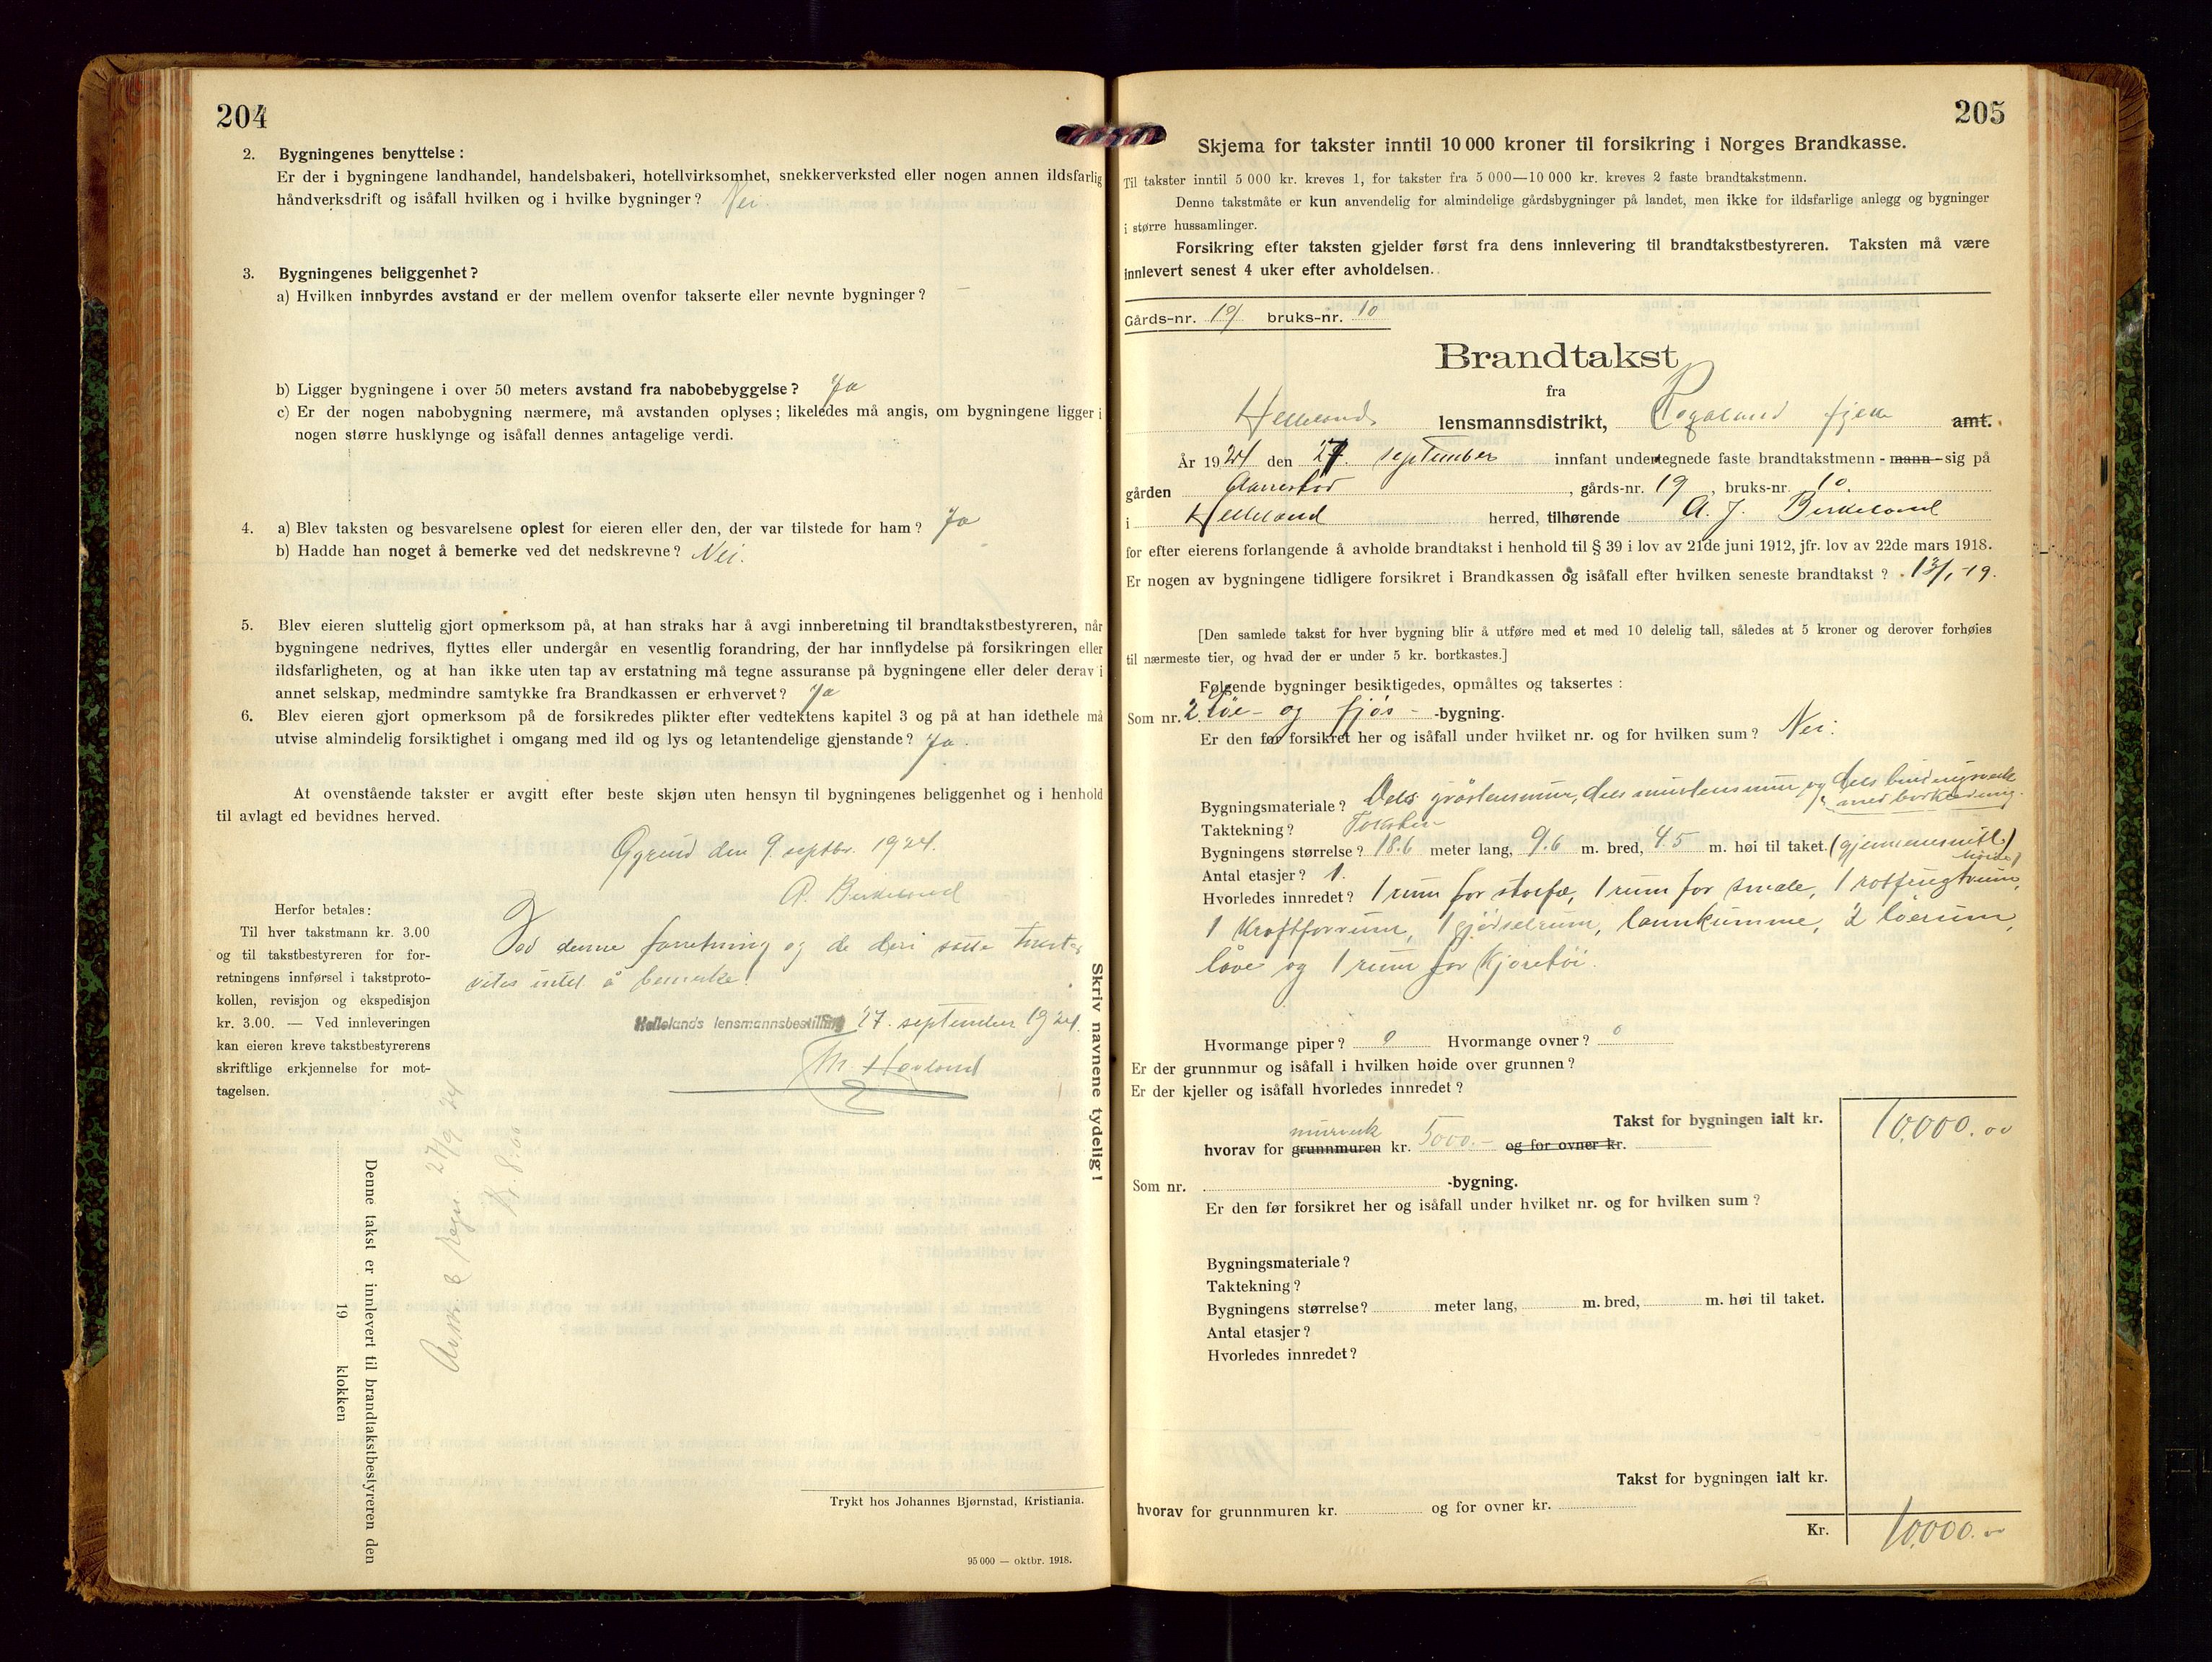 204
2. Bygningenes benyttelse :
Er der i bygningene landhandel, handelsbakeri, hotellvirksomhet, snekkerverksted eller nogen annen ildsfarlig
håndverksdrift og isåfall hvilken og i hvilke bygninger? Nei.
3. Bygningenes beliggenhet?
a) Hvilken innbyrdes avstand er der mellem ovenfor takserte eller nevnte bygninger? —
b) Ligger bygningene i over 50 meters avstand fra nabobebyggelse? Ja
c) Er der nogen nabobygning nærmere, må avstanden oplyses; likeledes må angis, om bygningene ligger i
nogen større husklynge og isåfall dennes antagelige verdi.
4. a) Blev taksten og besvarelsene oplest for eieren eller den, der var tilstede for ham? Ja
b) Hadde han noget å bemerke ved det nedskrevne? Nei.
5. Blev eieren sluttelig gjort opmerksom på, at han straks har å avgi innberetning til brandtakstbestyreren, når
bygningene nedrives, flyttes eller undergår en vesentlig forandring, der har innflydelse på forsikringen eller
ildsfarligheten, og at han ikke uten tap av erstatning må tegne assuranse på bygningene eller deler derav i
annet selskap, medmindre samtykke fra Brandkassen er erhvervet? Ja
6. Blev eieren gjort opmerksom på de forsikredes plikter efter vedtektens kapitel 3 og på at han idethele må
utvise almindelig forsiktighet i omgang med ild og lys og letantendelige gjenstande? Ja.
At ovenstående takster er avgitt efter beste skjøn uten hensyn til bygningenes beliggenhet og i henhold
til avlagt ed bevidnes herved.
den 9 septbr. 1924.
Birkeland
Ved denne forretning og de deri satte takster
vites intet å bemerke.
Hellelands lensmannsbestilling 27. september 1924.
M. Hovland
Herfor betales:
Til hver takstmann kr. 3.00
og til takstbestyreren for for-
retningens innførsel i takstproto-
kollen, revisjon og ekspedisjon
kr. 3.00. — Ved innleveringen
kan eieren kreve takstbestyrerens
skriftlige erkjennelse for mot-
tagelsen.
Skriv navnene tydelig!
Denne takst er innlevert til brandtakstbestyreren den
19 klokken
27/9 24
8.00
Trykt hos Johannes Bjørnstad, Kristiania.
95 000 — oktbr. 1918.
205
Skjema for takster inntil 10 000 kroner til forsikring i Norges Brandkasse.
Til takster inntil 5 000 kr. kreves 1, for takster fra 5 000—10 000 kr. kreves 2 faste brandtakstmenn.
Denne takstmåte er kun anvendelig for almindelige gårdsbygninger på landet, men ikke for ildsfarlige anlegg og bygninger
i større hussamlinger.
Forsikring efter taksten gjelder først fra dens innlevering til brandtakstbestyreren. Taksten må være
innlevert senest 4 uker efter avholdelsen.
Gårds-nr. 19 bruks-nr. 10
Brandtakst
fra
Hellelands lensmannsdistrikt, Rogaland fylke amt.
År 1924 den 27. september innfant undertegnede faste brandtakstmenn - mann - sig på
gården , gårds-nr. 19, bruks-nr. 10.
i Helleland herred, tilhørende A. J. Birkeland
for efter eierens forlangende å avholde brandtakst i henhold til § 39 i lov av 21de juni 1912, jfr. lov av 22de mars 1918.
Er nogen av bygningene tidligere forsikret i Brandkassen og isåfall efter hvilken seneste brandtakst? 13/1-19.
[Den samlede takst for hver bygning blir å utføre med et med 10 delelig tall, således at 5 kroner og derover forhøies
til nærmeste tier, og hvad der er under 5 kr. bortkastes.]
Følgende bygninger besiktigedes, opmåltes og taksertes :
Som nr. 2. løe- og fjøs- -bygning.
Er den før forsikret her og isåfall under hvilket nr. og for hvilken sum? Nei.
Bygningsmateriale? Dels gråstensmur, dels murstensmur og dels bindingsverk
med bordklædning.
Taktekning? Taksten
Bygningens størrelse? 18.6 meter lang, 9.6 m. bred, 4.5 m. høi til taket. (gjennemsnitl.
høide)
Antal etasjer? 1.
Hvorledes innredet? 1 rum for storfæ, 1 rum for smale, 1 rotfrugtrum,
1 kraftforrum, 1 gjødselrum, lannkumme, 2 løerum,
låve og 1 rum for kjøretøi.
Hvormange piper? 0 Hvormange ovner? 0
Er der grunnmur og isåfall i hvilken høide over grunnen?
Er der kjeller og isåfall hvorledes innredet?
Takst for bygningen ialt kr. 10.000.00
murverk
hvorav for grunnmuren kr. 5000.- og for ovner kr.
Som nr. -bygning.
Er den før forsikret her og isåfall under hvilket nr. og for hvilken sum?
Bygningsmateriale?
Taktekning?
Bygningens størrelse? meter lang, m. bred, m. høi til taket.
Antal etasjer?
Hvorledes innredet?
Takst for bygningen ialt kr.
hvorav for grunnmuren kr. og for ovner kr.
Kr. 10.000.00